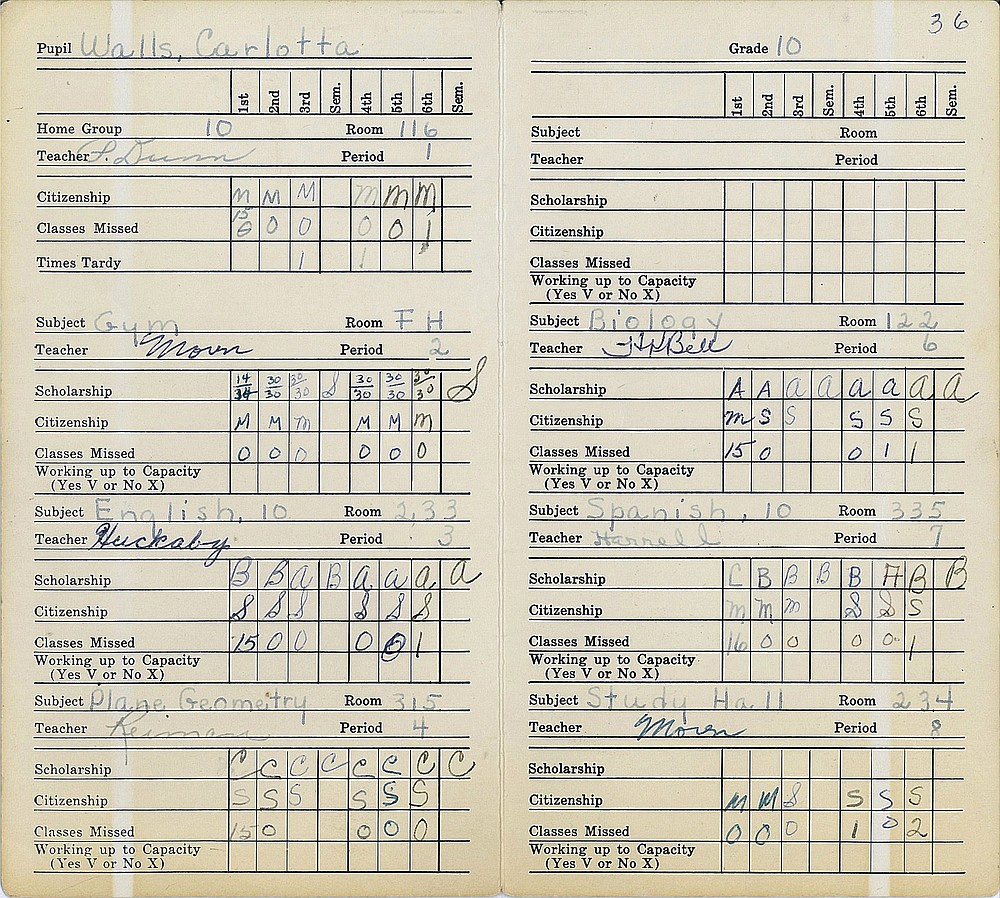 Pupil Walls, Carlotta
1st 2nd 3rd Sem. 4th 5th 6th Sem.
Home Group 10 Room 116
Teacher Period 1
Citizenship M M M M M M
Classes Missed 15 0 0 0 0 1
Times Tardy 1 1
Subject Gym Room F H
Teacher Period 2
Scholarship 14/34 30/30 30/30 S 30/30 30/30 30/30 S
Citizenship M M m M M m
Classes Missed 0 0 0 0 0 0
Working up to Capacity
(Yes V or No X)
Subject English, 10 Room 233
Teacher Huckaby Period 3
Scholarship B B a B a a a a
Citizenship S S S S S S
Classes Missed 15 0 0 0 0 1
Working up to Capacity
(Yes V or No X)
Subject Plane Geometry Room 315
Teacher Reiman Period 4
Scholarship C C C C C C C C
Citizenship S S S S S S
Classes Missed 15 0 0 0 0
Working up to Capacity
(Yes V or No X)
36
Grade 10
1st 2nd 3rd Sem. 4th 5th 6th Sem.
Subject Room
Teacher Period
Scholarship
Citizenship
Classes Missed
Working up to Capacity
(Yes V or No X)
Subject Biology Room 122
Teacher Bell Period 6
Scholarship A A a a a a a a
Citizenship m S S S S S
Classes Missed 15 0 0 1 1
Working up to Capacity
(Yes V or No X)
Subject Spanish, 10 Room 335
Teacher Harrell Period 7
Scholarship C B B B B A B B
Citizenship m m m S S S
Classes Missed 16 0 0 0 0 1
Working up to Capacity
(Yes V or No X)
Subject Study Hall Room 234
Teacher Period 8
Scholarship
Citizenship M M S S S S
Classes Missed 0 0 0 1 0 2
Working up to Capacity
(Yes V or No X)